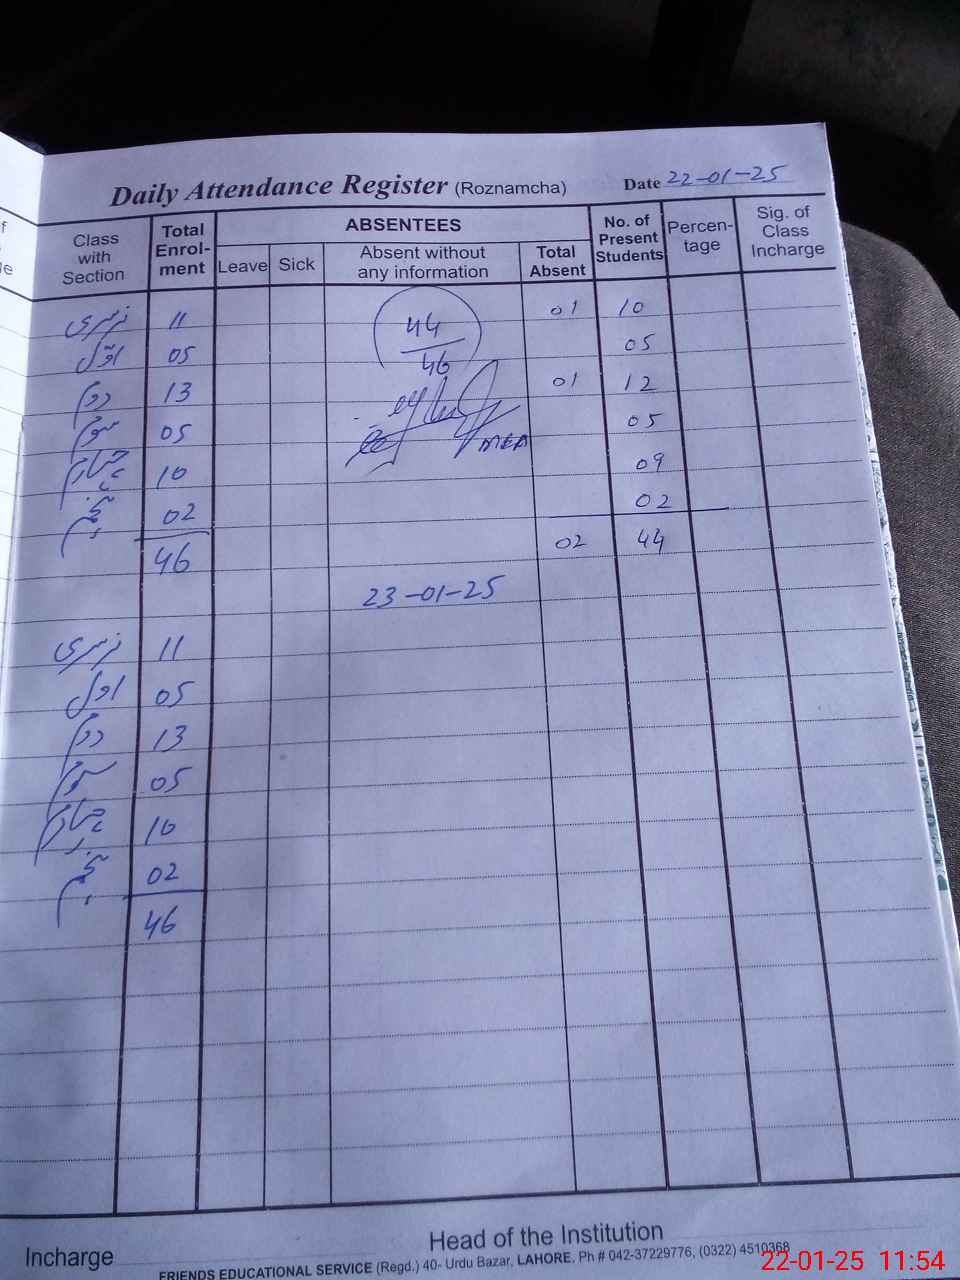 Daily Attendance Register (Roznamcha) Date 22-01-25
Class with Section Total Enrol-ment ABSENTEES No. of Present Students Percen-tage Sig. of Class Incharge
Leave Sick Absent without any information Total Absent
نرسری 11 01 10
44
46
اوّل 05 05
دوم 13 01 12
سوم 05 05
MEA
چہارم 10 09
پنجم 02 02
46 02 44
23-01-25
نرسری 11
اول 05
دوم 13
سوم 05
چہارم 10
پنجم 02
46
Incharge Head of the Institution
FRIENDS EDUCATIONAL SERVICE (Regd.) 40- Urdu Bazar, LAHORE, Ph # 042-37229776, (0322) 4510368
22-01-25 11:54